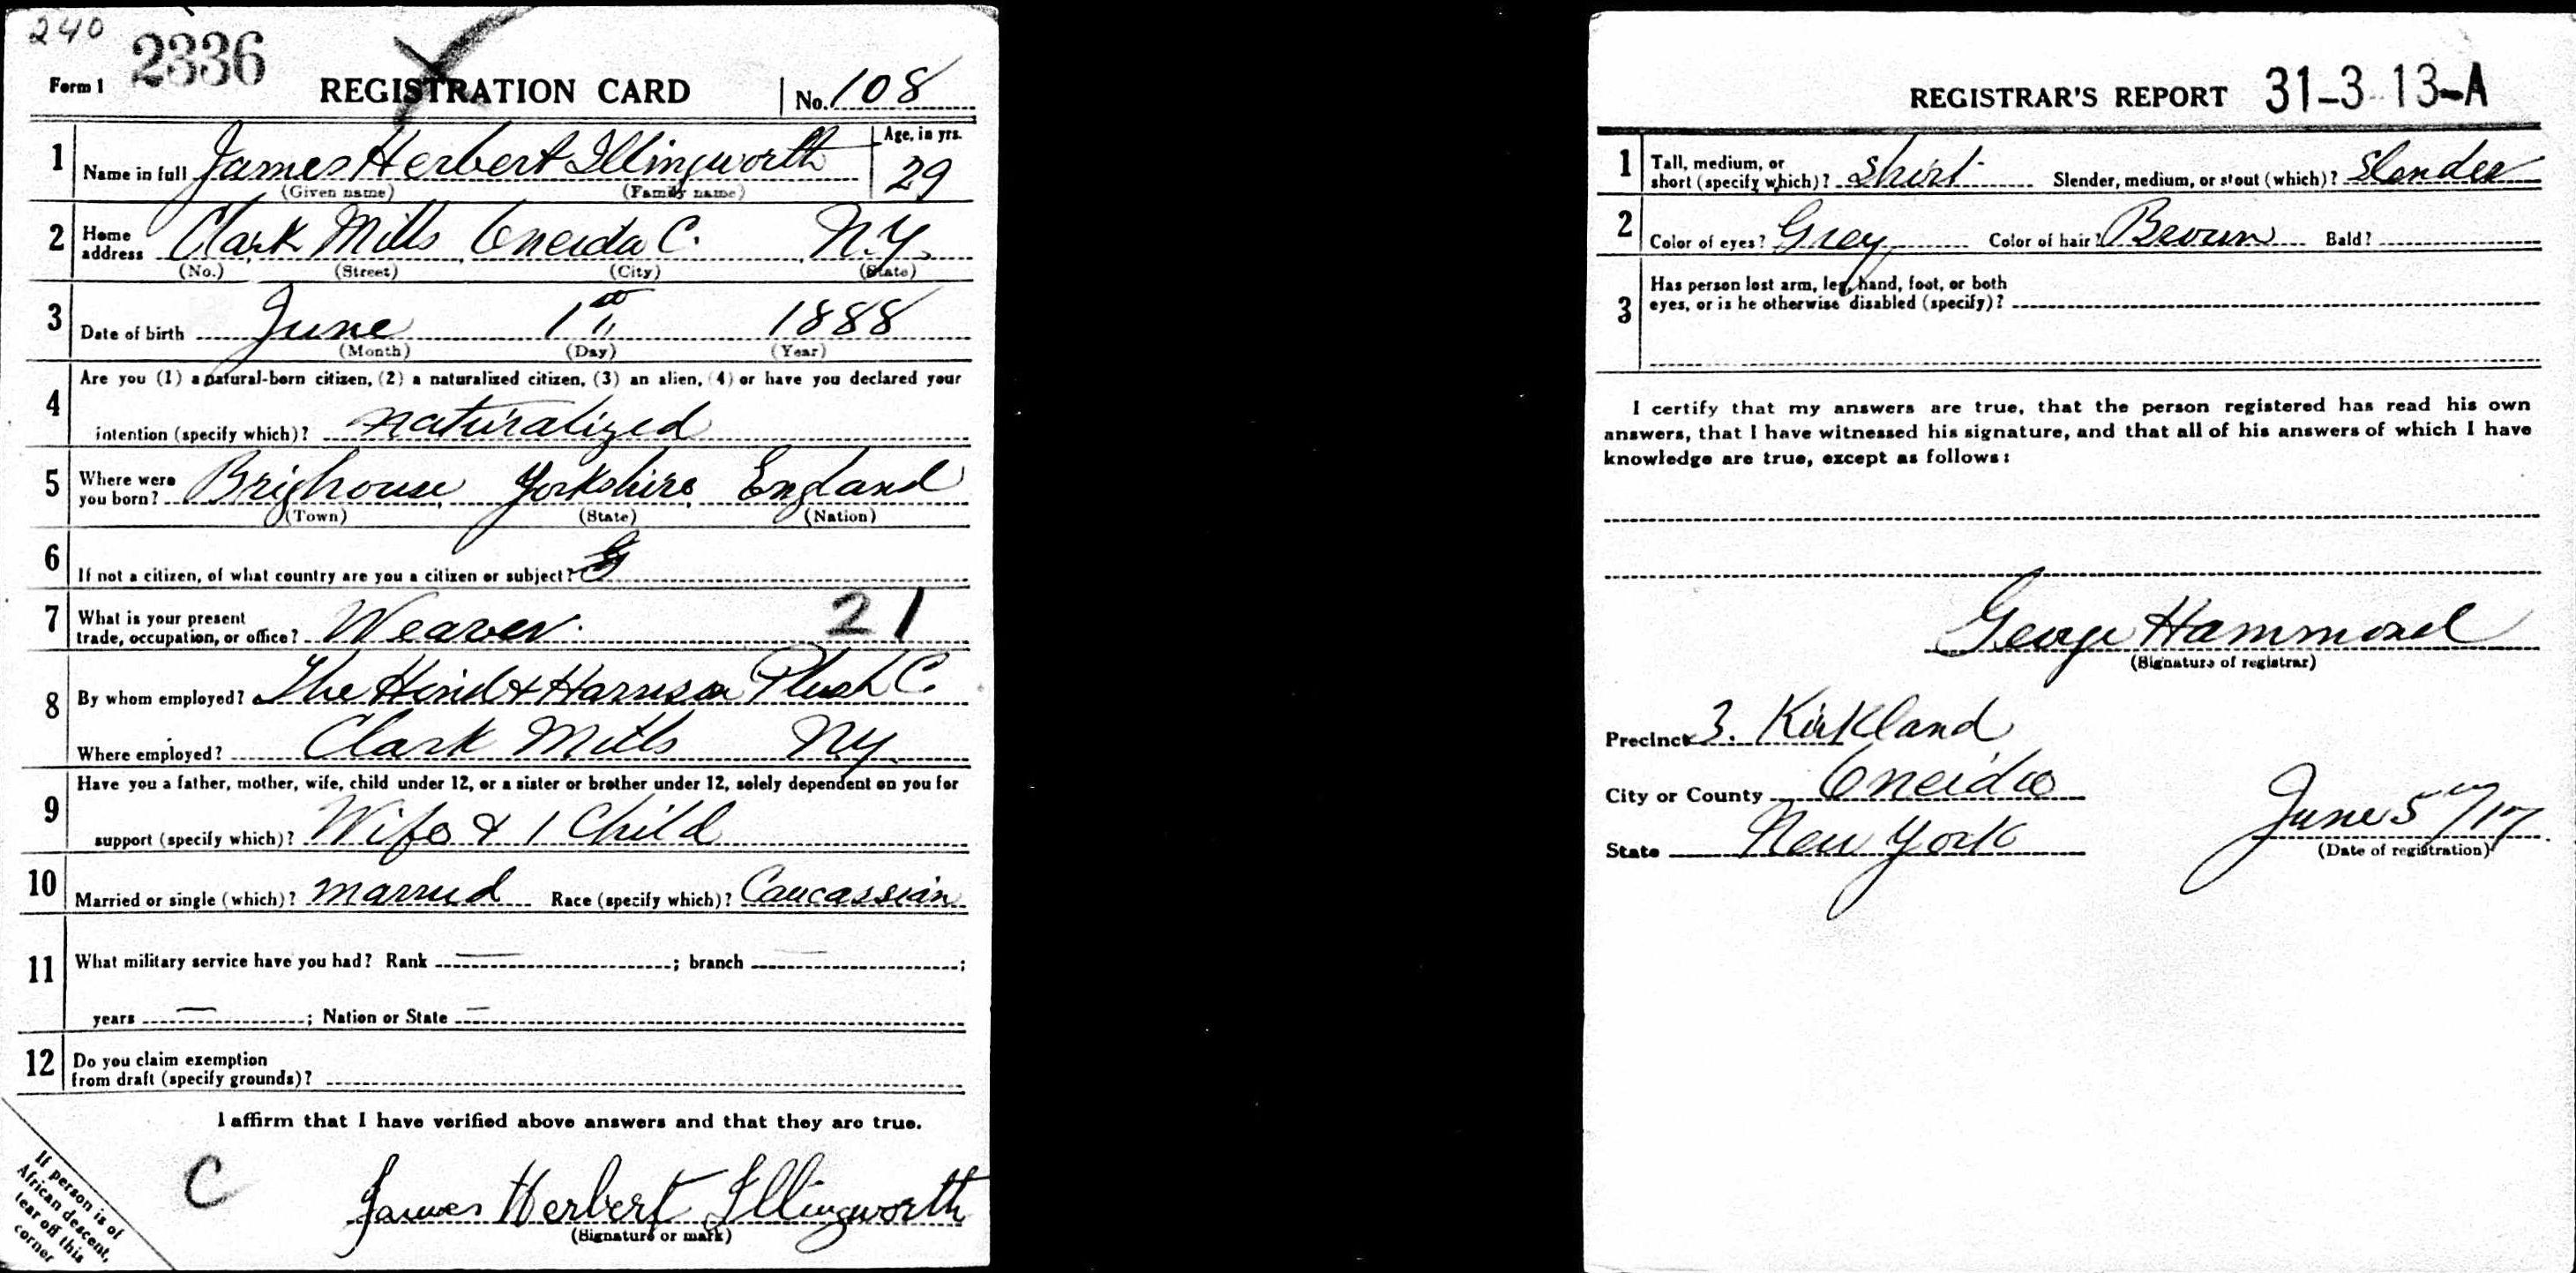 240
2336
Form 1 REGISTRATION CARD No. 108
1 Name in full James Herbert Illingworth Age, in yrs. 29
(Given name) (Family name)
2 Home address Clark Mills, Oneida C. N.Y.
(No.) (Street) (City) (State)
3 Date of birth June 1st 1888
(Month) (Day) (Year)
4 Are you (1) a natural-born citizen, (2) a naturalized citizen, (3) an alien, (4) or have you declared your
intention (specify which)? naturalized
5 Where were you born? Brighouse, Yorkshire, England
(Town) (State) (Nation)
6 If not a citizen, of what country are you a citizen or subject?
7 What is your present
trade, occupation, or office? Weaver. 21
8 By whom employed? The Hind & Harrison Plush C.
Where employed? Clark Mills NY.
9 Have you a father, mother, wife, child under 12, or a sister or brother under 12, solely dependent on you for
support (specify which)? Wife & 1 Child
10 Married or single (which)? married Race (specify which)? Caucassian
11 What military service have you had? Rank — ; branch — ;
years — ; Nation or State —
12 Do you claim exemption
from draft (specify grounds)?
I affirm that I have verified above answers and that they are true.
C James Herbert Illingworth
(Signature or mark)
If person is of
African descent,
tear off this
corner
REGISTRAR'S REPORT 31-3-13-A
1 Tall, medium, or
short (specify which)? Short Slender, medium, or stout (which)? Slender
2 Color of eyes? Grey Color of hair? Brown Bald?
3 Has person lost arm, leg, hand, foot, or both
eyes, or is he otherwise disabled (specify)?
I certify that my answers are true, that the person registered has read his own
answers, that I have witnessed his signature, and that all of his answers of which I have
knowledge are true, except as follows:
George Hammond
(Signature of registrar)
Precinct 3. Kirkland
City or County Oneida
State New York June 5th/17
(Date of registration)